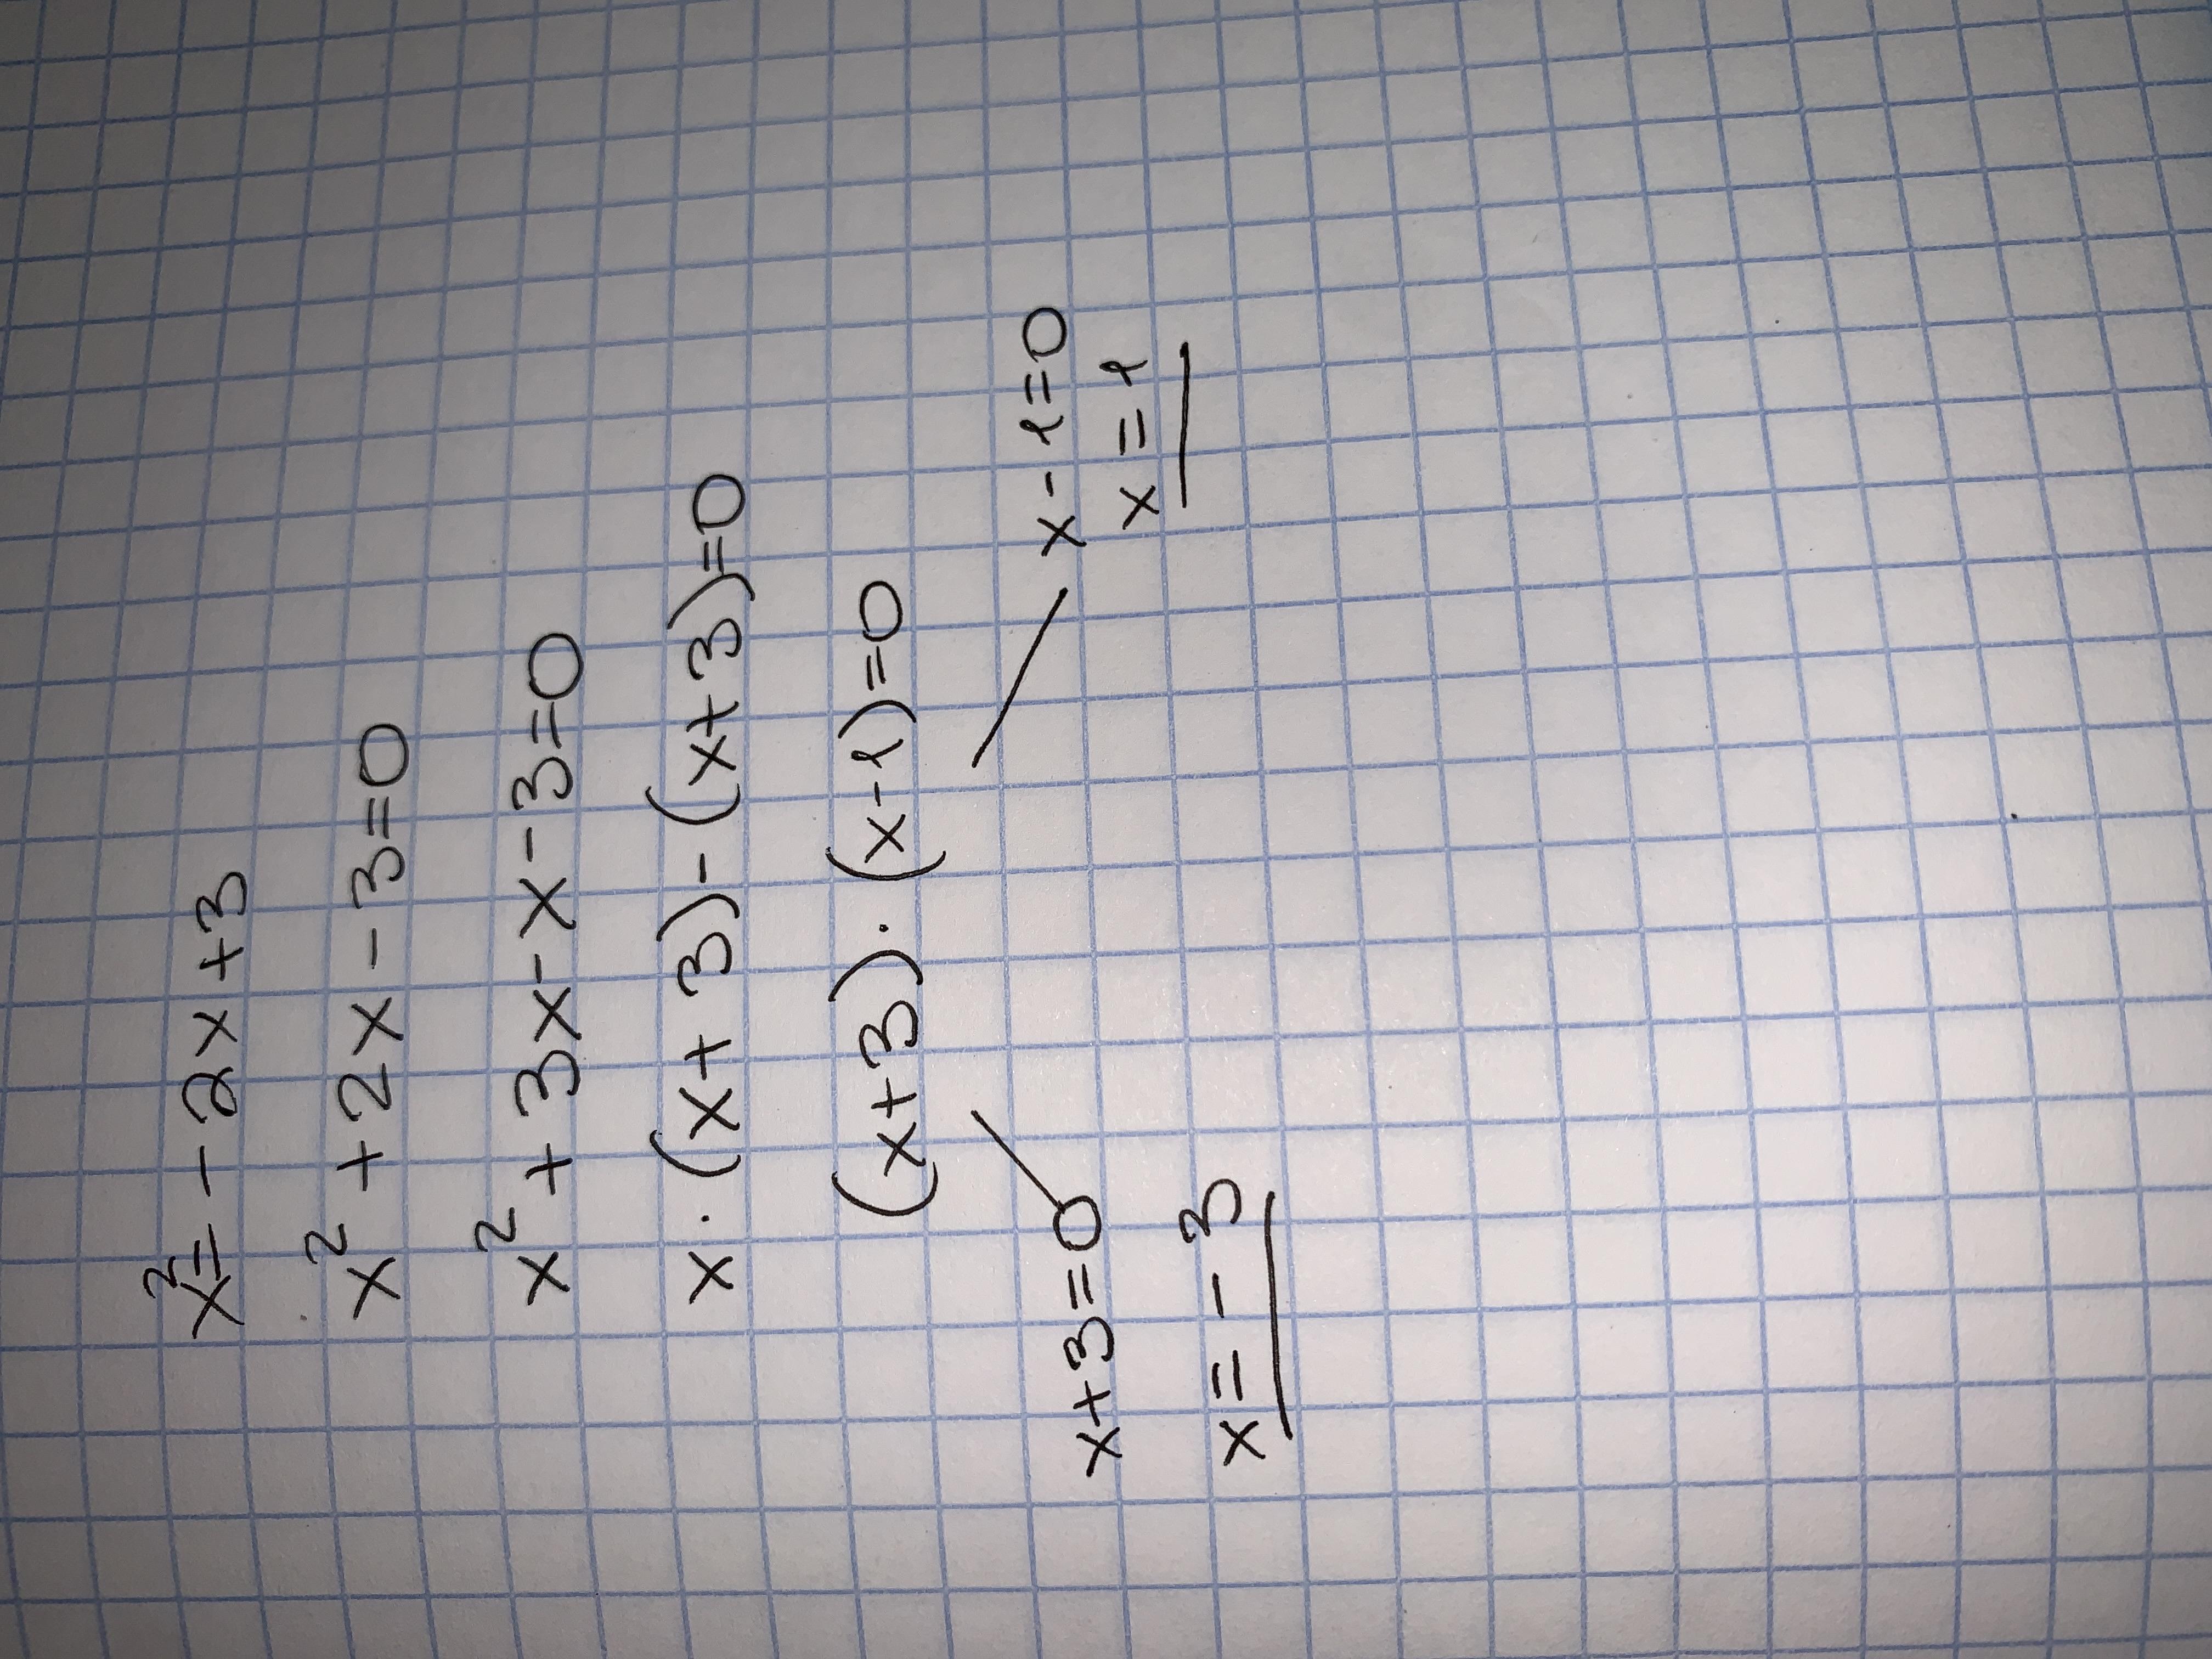 x²=-2x+3
x²+2x-3=0
x²+3x-x-3=0
x·(x+3)-(x+3)=0
(x+3)·(x-1)=0
x+3=0 x-1=0
x=-3 x=1